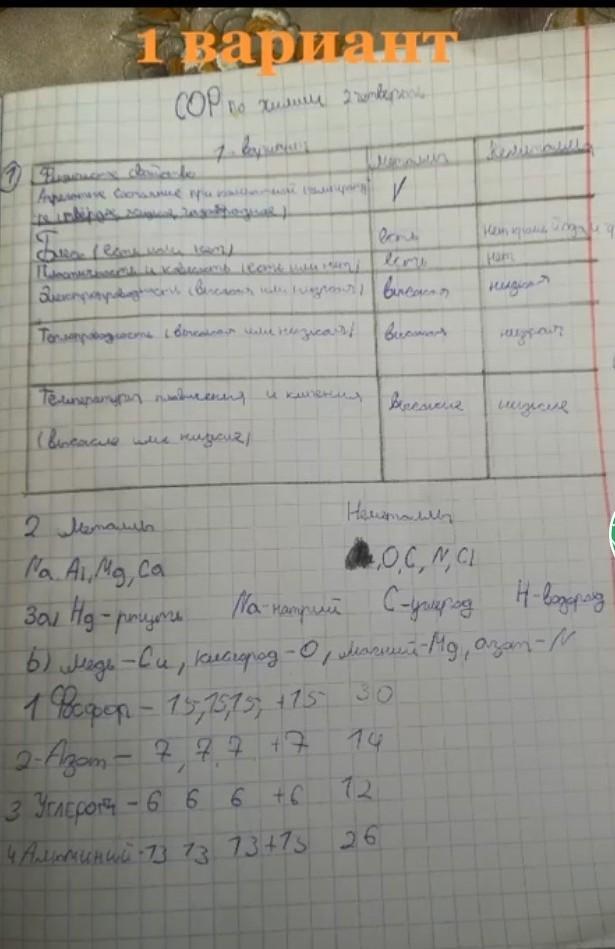 1 вариант
СОР по химии 2 четверть
1-вариант
1) Физические свойства Металлы Неметаллы
Агрегатное состояние при комнатной V
(твёрдое, жидкое, газообразное)
Блеск (есть или нет) есть нет кроме йода и
Пластичность и ковкость (есть или нет) есть нет
Электропроводность (высокая или низкая) высокая низкая
Теплопроводность (высокая или низкая) высокая низкая
Температуры плавления и кипения высокие низкие
(высокие или низкие)
2 Металлы Неметаллы
Na, Al, Mg, Ca ,O, C, N, Cl
3a) Hg-ртуть Na-натрий C-углерод H-водород
b) медь-Cu, кислород-O, магний-Mg, азот-N
1 Фосфор - 15,15,15, +15 30
2-Азот - 7, 7, 7 +7 14
3 Углерод - 6 6 6 +6 12
4 Алюминий-13 13 13+13 26